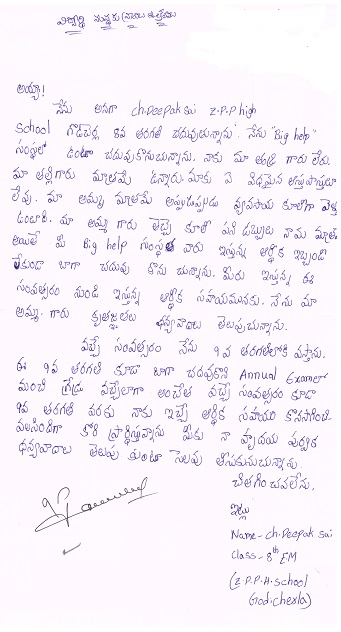 విద్యార్థి
అయ్యా!
నేను అనగా ch.Deepak sai Z.P.P high
School గొడిచెర్ల 8వ తరగతి చదువుతున్నాను. నేను "Big help"
సంస్థలో ఉంటూ చదువుకొనుచున్నాను. నాకు మా తండ్రి గారు లేరు.
మా తల్లిగారు మాత్రమే ఉన్నారు. మాకు ఏ విధమైన ఆస్తిపాస్తులూ
లేవు. మా అమ్మ మాత్రమే అప్పుడప్పుడు వ్యవసాయ కూలీగా వెళ్తూ
ఉంటారు. మా అమ్మ గారు తెచ్చె కూలి డబ్బులు
అయితే మీ Big help సంస్థ వారు ఇస్తున్న ఆర్థిక ఇబ్బంది
లేకుండా బాగా చదువు కొను చున్నాను. మీరు ఇస్తున్న ఈ
సంవత్సరం నుండి ఇస్తున్న ఆర్థిక సహాయమునకు నేను మా
అమ్మ గారు కృతజ్ఞతల ధన్యవాదాలు తెలుపుచున్నాను.
వచ్చే సంవత్సరం నేను 9వ తరగతిలోకి వస్తాను.
ఈ 9వ తరగతి కూడా బాగా చదువుకొని Annual Examలో
మంచి గ్రేడు వచ్చేలాగా వచ్చే సంవత్సరం కూడా
9వ తరగతి వరకు నాకు ఇచ్చే ఆర్థిక సహాయం
కోరి ప్రార్థిస్తున్నాను మీకు నా హృదయ పూర్వక
ధన్యవాదాలు తెలుపు కుంటూ సెలవు తీసుకొనుచున్నాను.
చిత్తగించవలెను.
ఇట్లు
Name - ch.Deepak sai
Class - 8th EM
(Z.P.P.H.School
God.cherla)